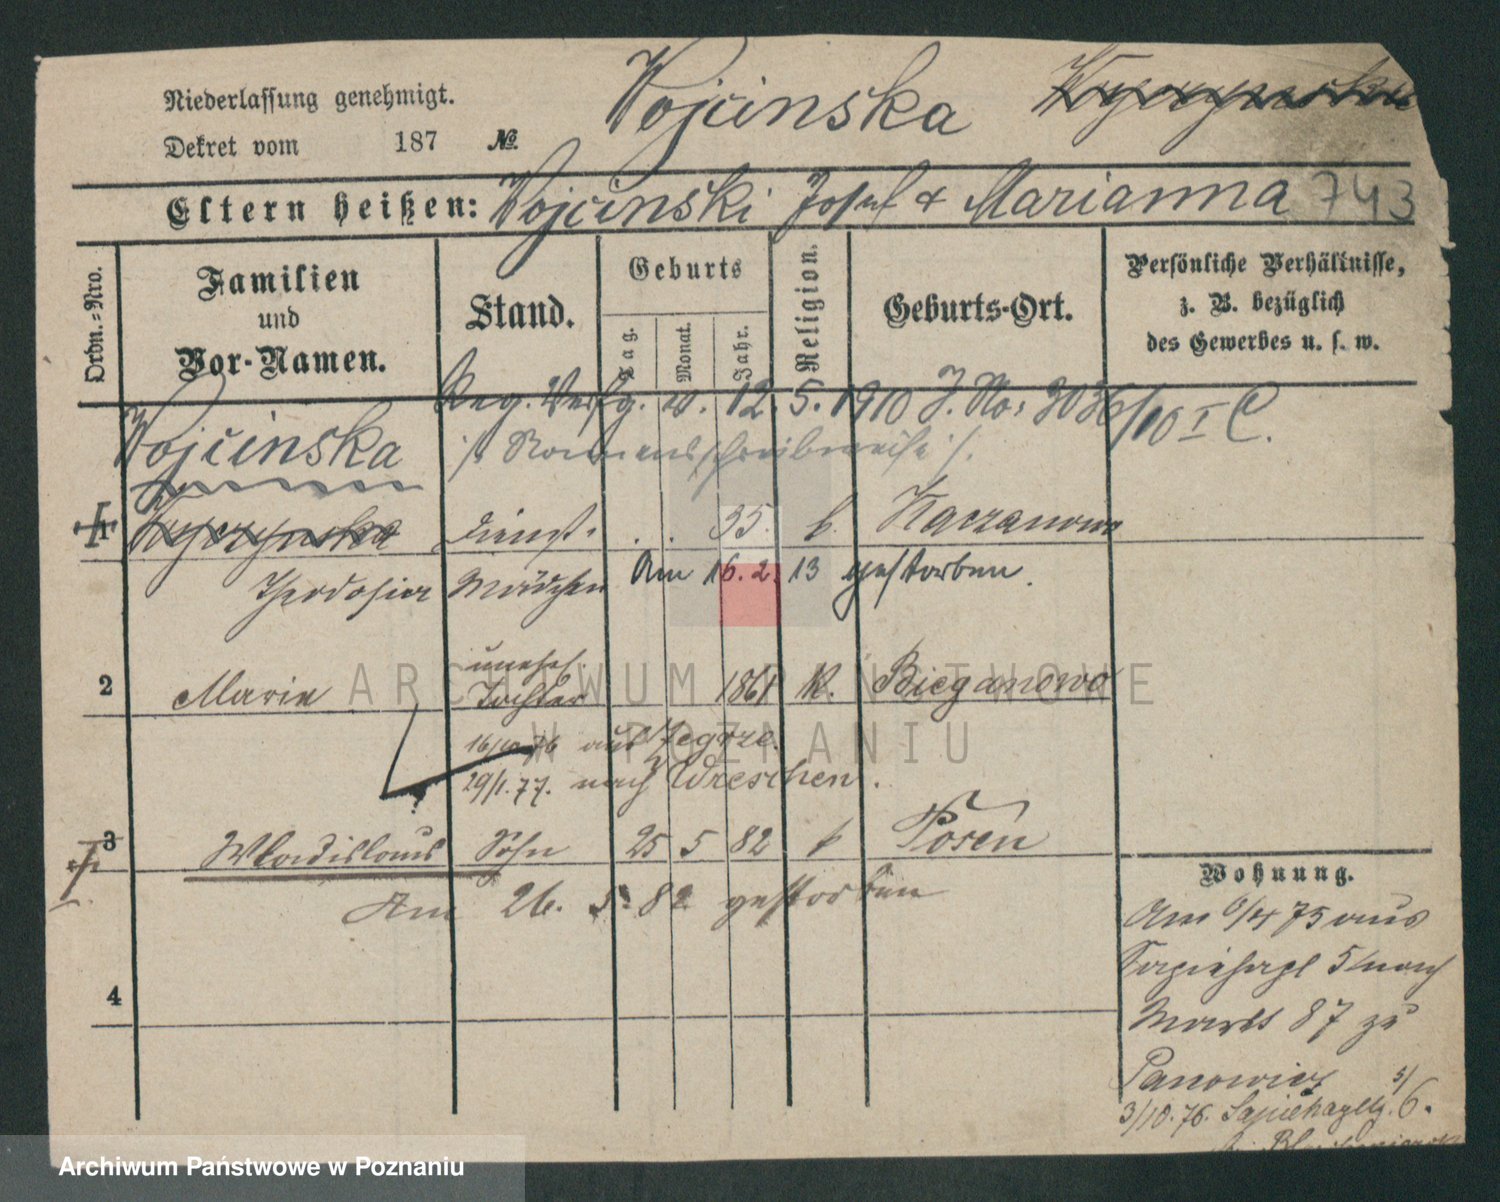 Niederlassung genehmigt.
Dekret vom 187 №
Wojcinska
Eltern heißen: Wojcinski Josef & Marianna 743
Ordn.-Nro.
Familien und Vor-Namen.
Stand.
Geburts
Tag.
Monat.
Jahr.
Religion.
Geburts-Ort.
Persönliche Verhältnisse,
z. B. bezüglich
des Gewerbes u. s. w.
Reg. Verfg. v. 12. 5. 1910 J. No: 3036/10 I C.
Wojcinska /: Namensschreibweise :/
1 Dienst- 35. k. Kaczanowo
Theodosia Mädchen Am 16. 2. 13 gestorben.
unehel.
2 Maria Tochter 1861 K. Bieganowo
16/10 76 aus Zegrze.
29/1. 77. nach Wreschen.
3 Wladislaus Sohn 25 5 82 k Posen
Am 26. 5. 82 gestorben
4
Wohnung.
Am 6/4 75 aus
Sapiehapl 5 nach
Markt 87 zu
Panowicz
3/10. 76. Sapiehapltz. 6.
ARCHIWUM PAŃSTWOWE
W POZNANIU
Archiwum Państwowe w Poznaniu